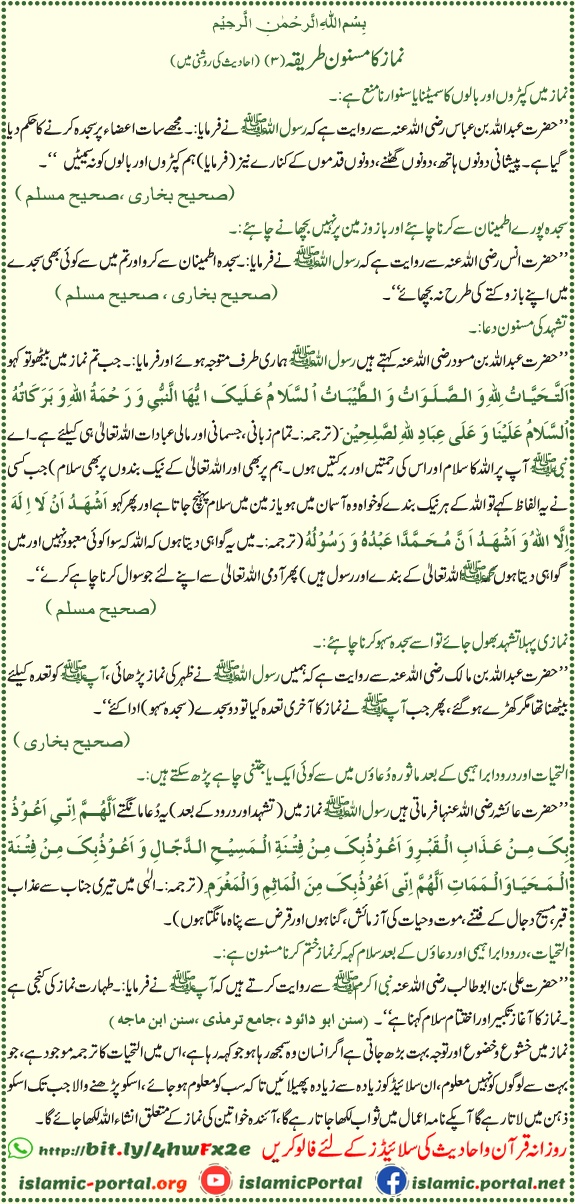 بِسْمِ اللهِ الرَّحْمٰنِ الرَّحِيْمِ
نماز کا مسنون طریقہ (۳) (احادیث کی روشنی میں)
نماز میں کپڑوں اور بالوں کا سمیٹنا یا سنوارنا منع ہے:۔
’’حضرت عبداللہ بن عباس رضی اللہ عنہ سے روایت ہے کہ رسول اللہ ﷺ نے فرمایا:۔ مجھے سات اعضاء پر سجدہ کرنے کا حکم دیا
گیا ہے۔ پیشانی دونوں ہاتھ، دونوں گھٹنے، دونوں قدموں کے کنارے نیز (فرمایا) ہم کپڑوں اور بالوں کو نہ سمیٹیں ‘‘۔
(صحیح بخاری ، صحیح مسلم )
سجدہ پورے اطمینان سے کرنا چاہئے اور بازو زمین پر نہیں بچھانے چاہئے:۔
’’حضرت انس رضی اللہ عنہ سے روایت ہے کہ رسول اللہ ﷺ نے فرمایا:۔ سجدہ اطمینان سے کرو اور تم میں سے کوئی بھی سجدے
میں اپنے بازو کتے کی طرح نہ بچھائے‘‘۔ (صحیح بخاری ، صحیح مسلم )
تشہد کی مسنون دعا:۔
’’حضرت عبداللہ بن مسود رضی اللہ عنہ کہتے ہیں رسول اللہ ﷺ ہماری طرف متوجہ ہوئے اور فرمایا:۔ جب تم نماز میں بیٹھو تو کہو
اَلتَّحَيَّاتُ لِلّٰهِ وَ الصَّلَوَاتُ وَ الطَّيِّبَاتُ اَلسَّلَامُ عَلَيكَ ايُّهَا النَّبِي وَ رَحْمَةُ اللهِ وَ بَرَكَاتُهُ
اَلسَّلَامُ عَلَيْنَا وَ عَلَى عِبَادِ لِلّٰهِ لصّٰلِحِيْن (ترجمہ:۔ تمام زبانی، جسمانی اور مالی عبادات اللہ تعالٰی ہی کیلئے ہے۔ اے
نبی ﷺ آپ پر اللہ کا سلام اور اس کی رحمتیں اور برکتیں ہوں۔ ہم پر بھی اور اللہ تعالٰی کے نیک بندوں پر بھی سلام) جب کسی
نے یہ الفاظ کہے تو اللہ کے ہر نیک بندے کو خواہ وہ آسمان میں ہو یا زمین میں سلام پہنچ جاتا ہے اور پھر کہو اَشْهَدُ اَنْ لَا اِلَهَ
اِلَّا اللهُ وَ اَشْهَدُ اَنَّ مُحَمَّدًا عَبْدُهُ وَ رَسُوْلُهُ (ترجمہ:۔ میں یہ گواہی دیتا ہوں کہ اللہ کہ سوا کوئی معبود نہیں اور میں
گواہی دیتا ہوں محمد ﷺ اللہ تعالٰی کے بندے اور رسول ہیں) پھر آدمی اللہ تعالٰی سے اپنے لئے جو سوال کرنا چاہے کرے‘‘۔
(صحیح مسلم )
نمازی پہلا تشہد بھول جائے تو اسے سجدہ سہو کرنا چاہئے:۔
’’حضرت عبداللہ بن مالک رضی اللہ عنہ سے روایت ہے کہ ہمیں رسول اللہ ﷺ نے ظہر کی نماز پڑھائی، آپ ﷺ کو قعدہ کیلئے
بیٹھنا تھا مگر کھڑے ہو گئے، پھر جب آپ ﷺ نے نماز کا آخری تعدہ کیا تو دو سجدے (سجدہ سہو) ادا کئے‘‘۔
(صحیح بخاری )
التحیات اور درود ابراہیمی کے بعد ماثورہ دُعاؤں میں سے کوئی ایک یا جتنی چاہے پڑھ سکتے ہیں:۔
’’حضرت عائشہ رضی اللہ عنہا فرماتی ہیں رسول اللہ ﷺ نماز میں (تشہد اور درود کے بعد) یہ دُعا مانگتے اَللّٰهُمَّ اِنِّى اَعُوْذُ
بِكَ مِنْ عَذَابِ الْقَبْرِ وَ اَعُوْذُبِكَ مِنْ فِتْنَةِ الْمَسِيْحِ الدَّجَّالِ وَ اَعُوْذُبِكَ مِنْ فِتْنَةِ
الْمَحَيَا وَالْمَمَاتِ اَللّٰهُمَّ اِنِّى اَعُوْذُبِكَ مِنَ الْمَاثِمِ وَالْمَغْرَمِ (ترجمہ:۔ الٰہی میں تیری جناب سے عذاب
قبر، مسیح دجال کے فتنے، موت و حیات کی آزمائش، گناہوں اور قرض سے پناہ مانگتا ہوں)۔
التحیات، درود ابراہیمی اور دعاؤں کے بعد سلام کہہ کر نماز ختم کرنا مسنون ہے:۔
’’حضرت علی بن ابو طالب رضی اللہ عنہ نبی اکرم ﷺ سے روایت کرتے ہیں کہ آپ ﷺ نے فرمایا:۔ طہارت نماز کی کنجی ہے
۔ نماز کا آغاز تکبیر اور اختتام سلام کہنا ہے‘‘۔ (سنن ابو دائود ، جامع ترمذی ، سنن ابن ماجه )
نماز میں خشوع و خضوع اور توجہ بہت بڑھ جاتی ہے اگر انسان وہ سمجھ رہا ہو جو کہہ رہا ہے، اس میں التحیات کا ترجمہ موجود ہے، جو
بہت سے لوگوں کو نہیں معلوم، ان سلائیڈ کو زیادہ سے زیادہ پھیلائیں تاکہ سب کو معلوم ہو جائے، اسکو پڑھنے والا جب تک اسکو
ذہن میں لاتا رہے گا آپکے نامہ اعمال میں ثواب لکھا جاتا رہے گا، آئندہ خواتین کی نماز کے متعلق انشاء اللہ لکھا جائے گا۔
روزانہ قرآن و احادیث کی سلائیڈز کے لئے فالو کریں http://bit.ly/4hwFx2e
islamic-portal.org islamic.portal.net